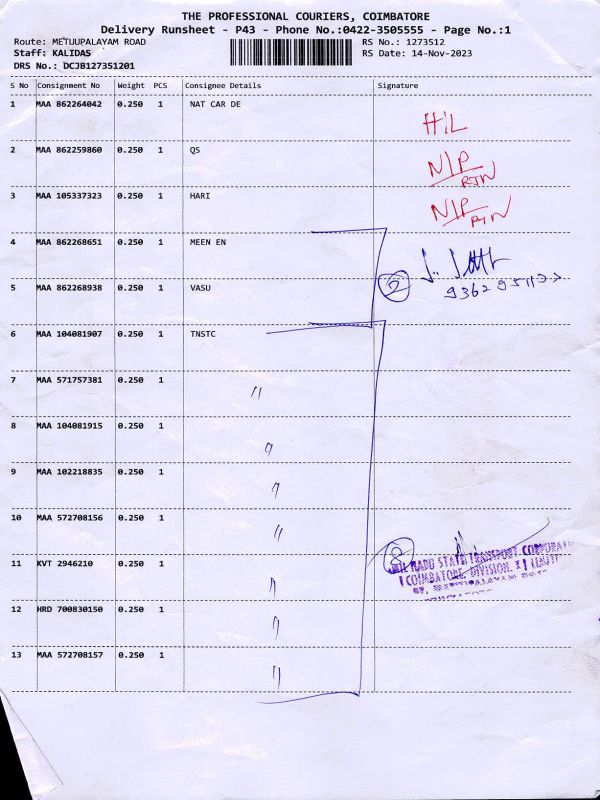 THE PROFESSIONAL COURIERS, COIMBATORE
Delivery Runsheet - P43 - Phone No.:0422-3505555 - Page No.:1
Route: METUUPALAYAM ROAD RS No.: 1273512
Staff: KALIDAS RS Date: 14-Nov-2023
DRS No.: DCJB127351201
S No Consignment No Weight PCS Consignee Details Signature
1 MAA 862264042 0.250 1 NAT CAR DE
H/L
2 MAA 862259860 0.250 1 QS
N/P
RTN
3 MAA 105337323 0.250 1 HARI
N/P
RTN
4 MAA 862268651 0.250 1 MEEN EN
5 MAA 862268938 0.250 1 VASU
2
6 MAA 104081907 0.250 1 TNSTC
7 MAA 571757381 0.250 1
"
8 MAA 104081915 0.250 1
"
9 MAA 102218835 0.250 1
"
10 MAA 572708156 0.250 1
"
8
NADU STATE TRANSPORT CORPORAT
11 KVT 2946210 0.250 1
COIMBATORE DIVISION
"
12 HRD 700830150 0.250 1
"
13 MAA 572708157 0.250 1
"